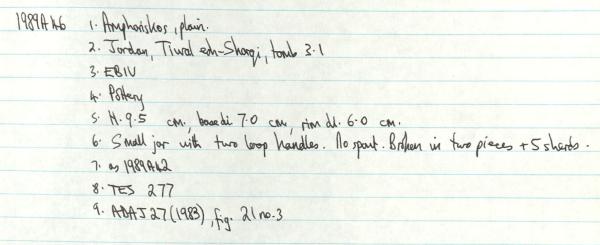 1989A46 1. Amphoriskos, plain.
2. Jordan, Tiwal esh-Sharqi, tomb 3.1
3. EBIV
4. Pottery
5. H. 9.5 cm, base di 7.0 cm, rim di. 6.0 cm.
6. Small jar with two loop handles. No spout. Broken in two pieces + 5 sherds.
7. as 1989A42
8. TES 277
9. ADAJ 27 (1983), fig. 21 no. 3